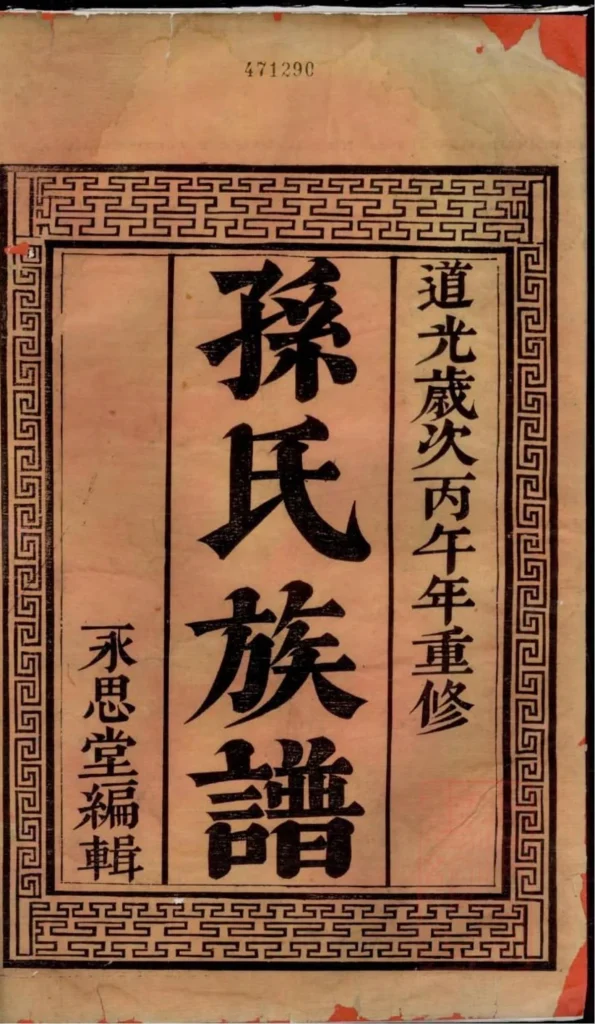 471290
道光歲次丙午年重修
孫氏族譜
永思堂編輯